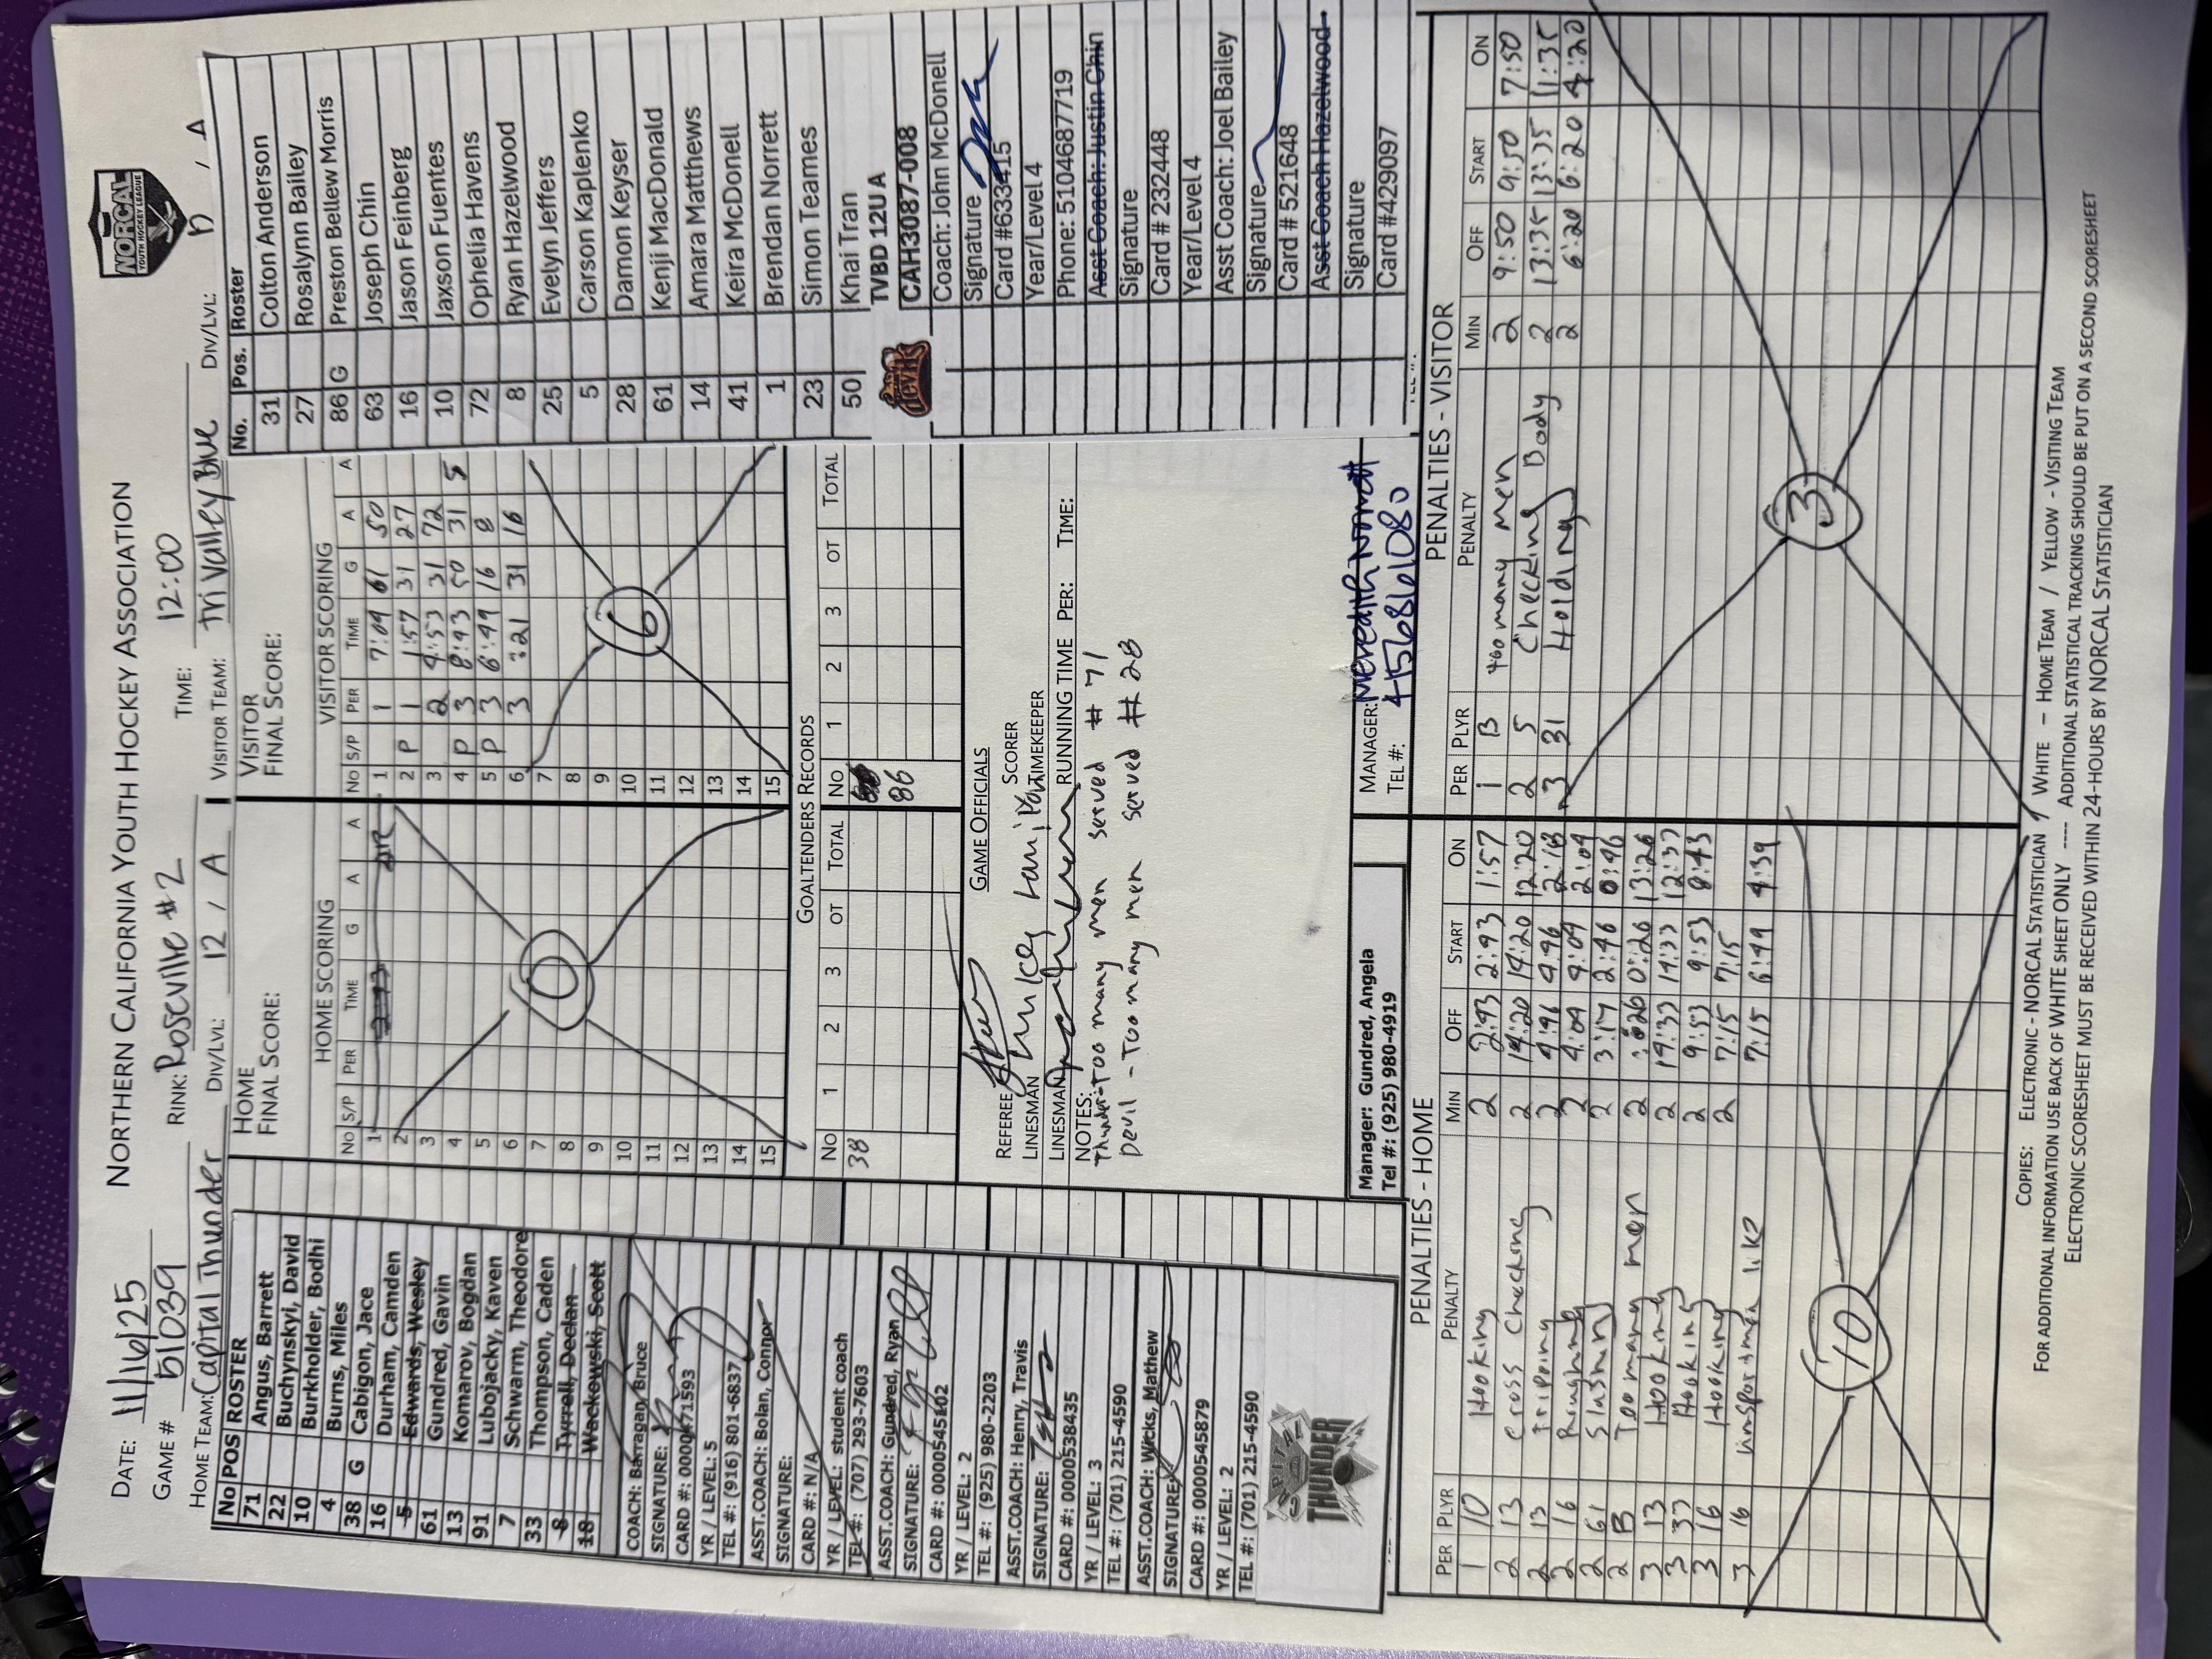 NORTHERN CALIFORNIA YOUTH HOCKEY ASSOCIATION
NORCAL
YOUTH HOCKEY LEAGUE
DATE: 11/16/25
GAME # 51039 RINK: Roseville #2 TIME: 12:00
HOME TEAM: Capital Thunder DIV/LVL: 12 / A VISITOR TEAM: Tri Valley Blue DIV/LVL: / A
No POS ROSTER
71 Angus, Barrett
22 Buchynskyi, David
10 Burkholder, Bodhi
4 Burns, Miles
38 G Cabigon, Jace
16 Durham, Camden
5 Edwards, Wesley
61 Gundred, Gavin
13 Komarov, Bogdan
91 Lubojacky, Kaven
7 Schwarm, Theodore
33 Thompson, Caden
8 Tyrrell, Declan
18 Wackowski, Scott
COACH: Barragan, Bruce
SIGNATURE:
CARD #: 0000471593
YR / LEVEL: 5
TEL #: (916) 801-6837
ASST.COACH: Bolan, Connor
SIGNATURE:
CARD #: N/A
YR / LEVEL: student coach
TEL #: (707) 293-7603
ASST.COACH: Gundred, Ryan
SIGNATURE:
CARD #: 0000545102
YR / LEVEL: 2
TEL #: (925) 980-2203
ASST.COACH: Henry, Travis
SIGNATURE:
CARD #: 0000538435
YR / LEVEL: 3
TEL #: (701) 215-4590
ASST.COACH: Wicks, Mathew
SIGNATURE:
CARD #: 0000545879
YR / LEVEL: 2
TEL #: (701) 215-4590
CAPITAL
THUNDER
HOME
FINAL SCORE:
HOME SCORING
No S/P PER TIME G A A
1
2
3
4
5
6
7
8
9
10
11
12
13
14
15
0
VISITOR
FINAL SCORE:
VISITOR SCORING
No S/P PER TIME G A A
1 1 7:09 61 50
2 P 1 1:57 31 27
3 2 4:53 31 72
4 P 3 8:43 50 31 5
5 P 3 6:49 16 8
6 3 :21 31 16
7
8
9
10
11
12
13
14
15
6
GOALTENDERS RECORDS
No 1 2 3 OT TOTAL No 1 2 3 OT TOTAL
38
86
GAME OFFICIALS
REFEREE SCORER
LINESMAN TIMEKEEPER
LINESMAN RUNNING TIME PER: TIME:
NOTES:
Thunder-Too many men served # 71
Devil - Too many men served # 28
Manager: Gundred, Angela
Tel #: (925) 980-4919
MANAGER: Meredith Norrett
TEL #: 4156861080
No. Pos. Roster
31 Colton Anderson
27 Rosalynn Bailey
86 G Preston Bellew Morris
63 Joseph Chin
16 Jason Feinberg
10 Jaxson Fuentes
72 Ophelia Havens
8 Ryan Hazelwood
25 Evelyn Jeffers
5 Carson Kaplenko
28 Damon Keyser
61 Kenji MacDonald
14 Amara Matthews
41 Keira McDonell
1 Brendan Norrett
23 Simon Teames
50 Khai Tran
TVBD 12U A
devils
CAH3087-008
Coach: John McDonell
Signature
Card #633415
Year/Level 4
Phone: 5104687719
Asst Coach: Justin Chin
Signature
Card # 232448
Year/Level 4
Asst Coach: Joel Bailey
Signature
Card # 521648
Asst Coach Hazelwood
Signature
Card #429097
PENALTIES - HOME
PER PLYR PENALTY MIN OFF START ON
1 10 Hooking 2 2:43 2:43 1:57
2 13 Cross Checking 2 14:20 14:20 12:20
2 13 Tripping 2 4:46 4:46 2:18
2 16 Roughing 2 4:04 4:04 2:04
2 61 Slashing 2 3:17 2:46 0:46
2 B Too many men 2 :26 0:26 13:26
3 13 Hooking 2 14:33 14:33 12:33
3 33 Hooking 2 9:53 9:53 8:43
3 16 Hooking 2 7:15 7:15
3 16 unsportsmen like 7:15 6:49 4:39
10
PENALTIES - VISITOR
PER PLYR PENALTY MIN OFF START ON
1 B too many men 2 9:50 9:50 7:50
2 5 Checking Body 2 13:35 13:35 11:35
3 31 Holding 2 6:20 6:20 4:20
3
COPIES: ELECTRONIC - NORCAL STATISTICIAN / WHITE – HOME TEAM / YELLOW - VISITING TEAM
FOR ADDITIONAL INFORMATION USE BACK OF WHITE SHEET ONLY ---- ADDITIONAL STATISTICAL TRACKING SHOULD BE PUT ON A SECOND SCORESHEET
ELECTRONIC SCORESHEET MUST BE RECEIVED WITHIN 24-HOURS BY NORCAL STATISTICIAN